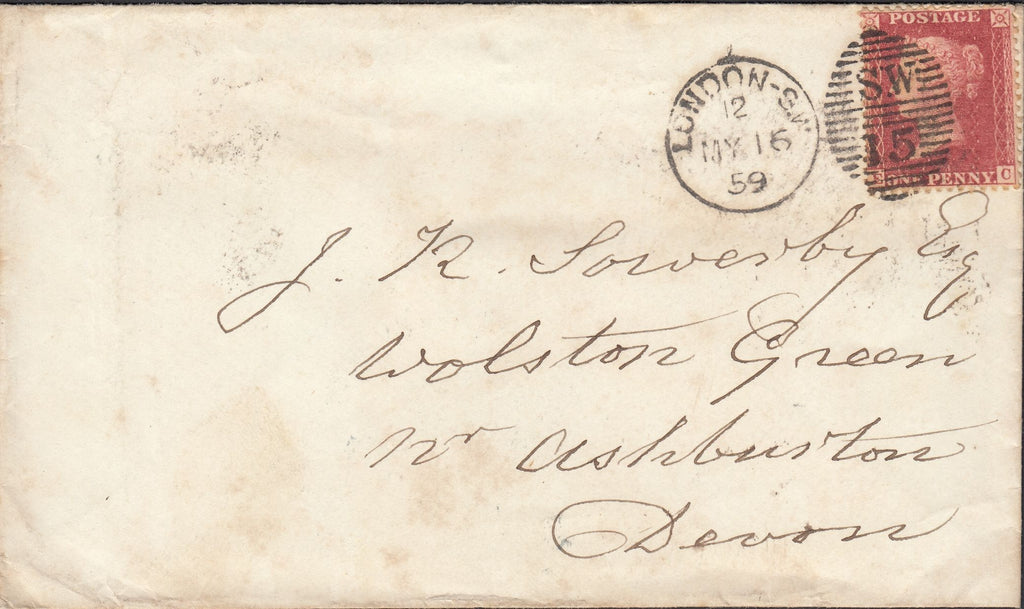 POSTAGE
LONDON-S.W
12
MY 16
59
SW
15
ONE PENNY.
C
J. R. Sowerby Esq
Wolston Green
nr Ashburton
Devon